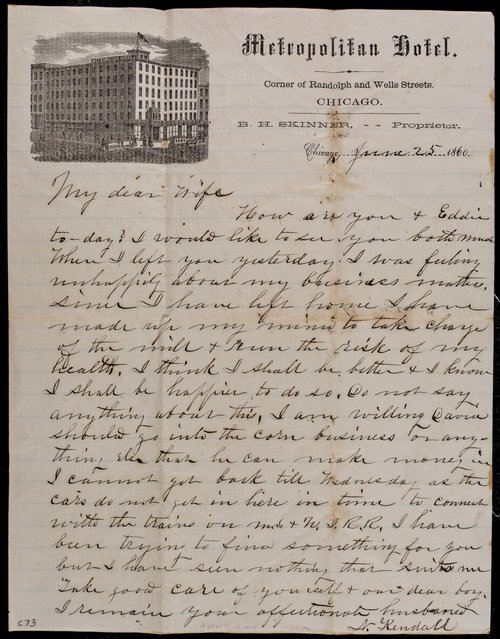 Metropolitan Hotel.
Corner of Randolph and Wells Streets.
CHICAGO.
B. H. SKINNER, -- Proprietor.
Chicago, June 25 1860.
My dear Wife
How are you & Eddie
to-day? I would like to see you both much
When I left you yesterday I was feeling
unhappily about my business matters,
since I have left home I have
made up my mind to take charge
of the mill & run the risk of my
health. I think I shall be better & I know
I shall be happier to do so. Do not say
anything about this, I am willing
should go into the corn business or any-
thing else that he can make money in
I cannot get back till Wednesday as the
cars do not get in here in time to connect
with the trains on & R.R. I have
been trying to find something for you
but I have seen nothing that suits me
Take good care of yourself & our dear boy.
I remain your affectionate husband
N. Kendall
C73